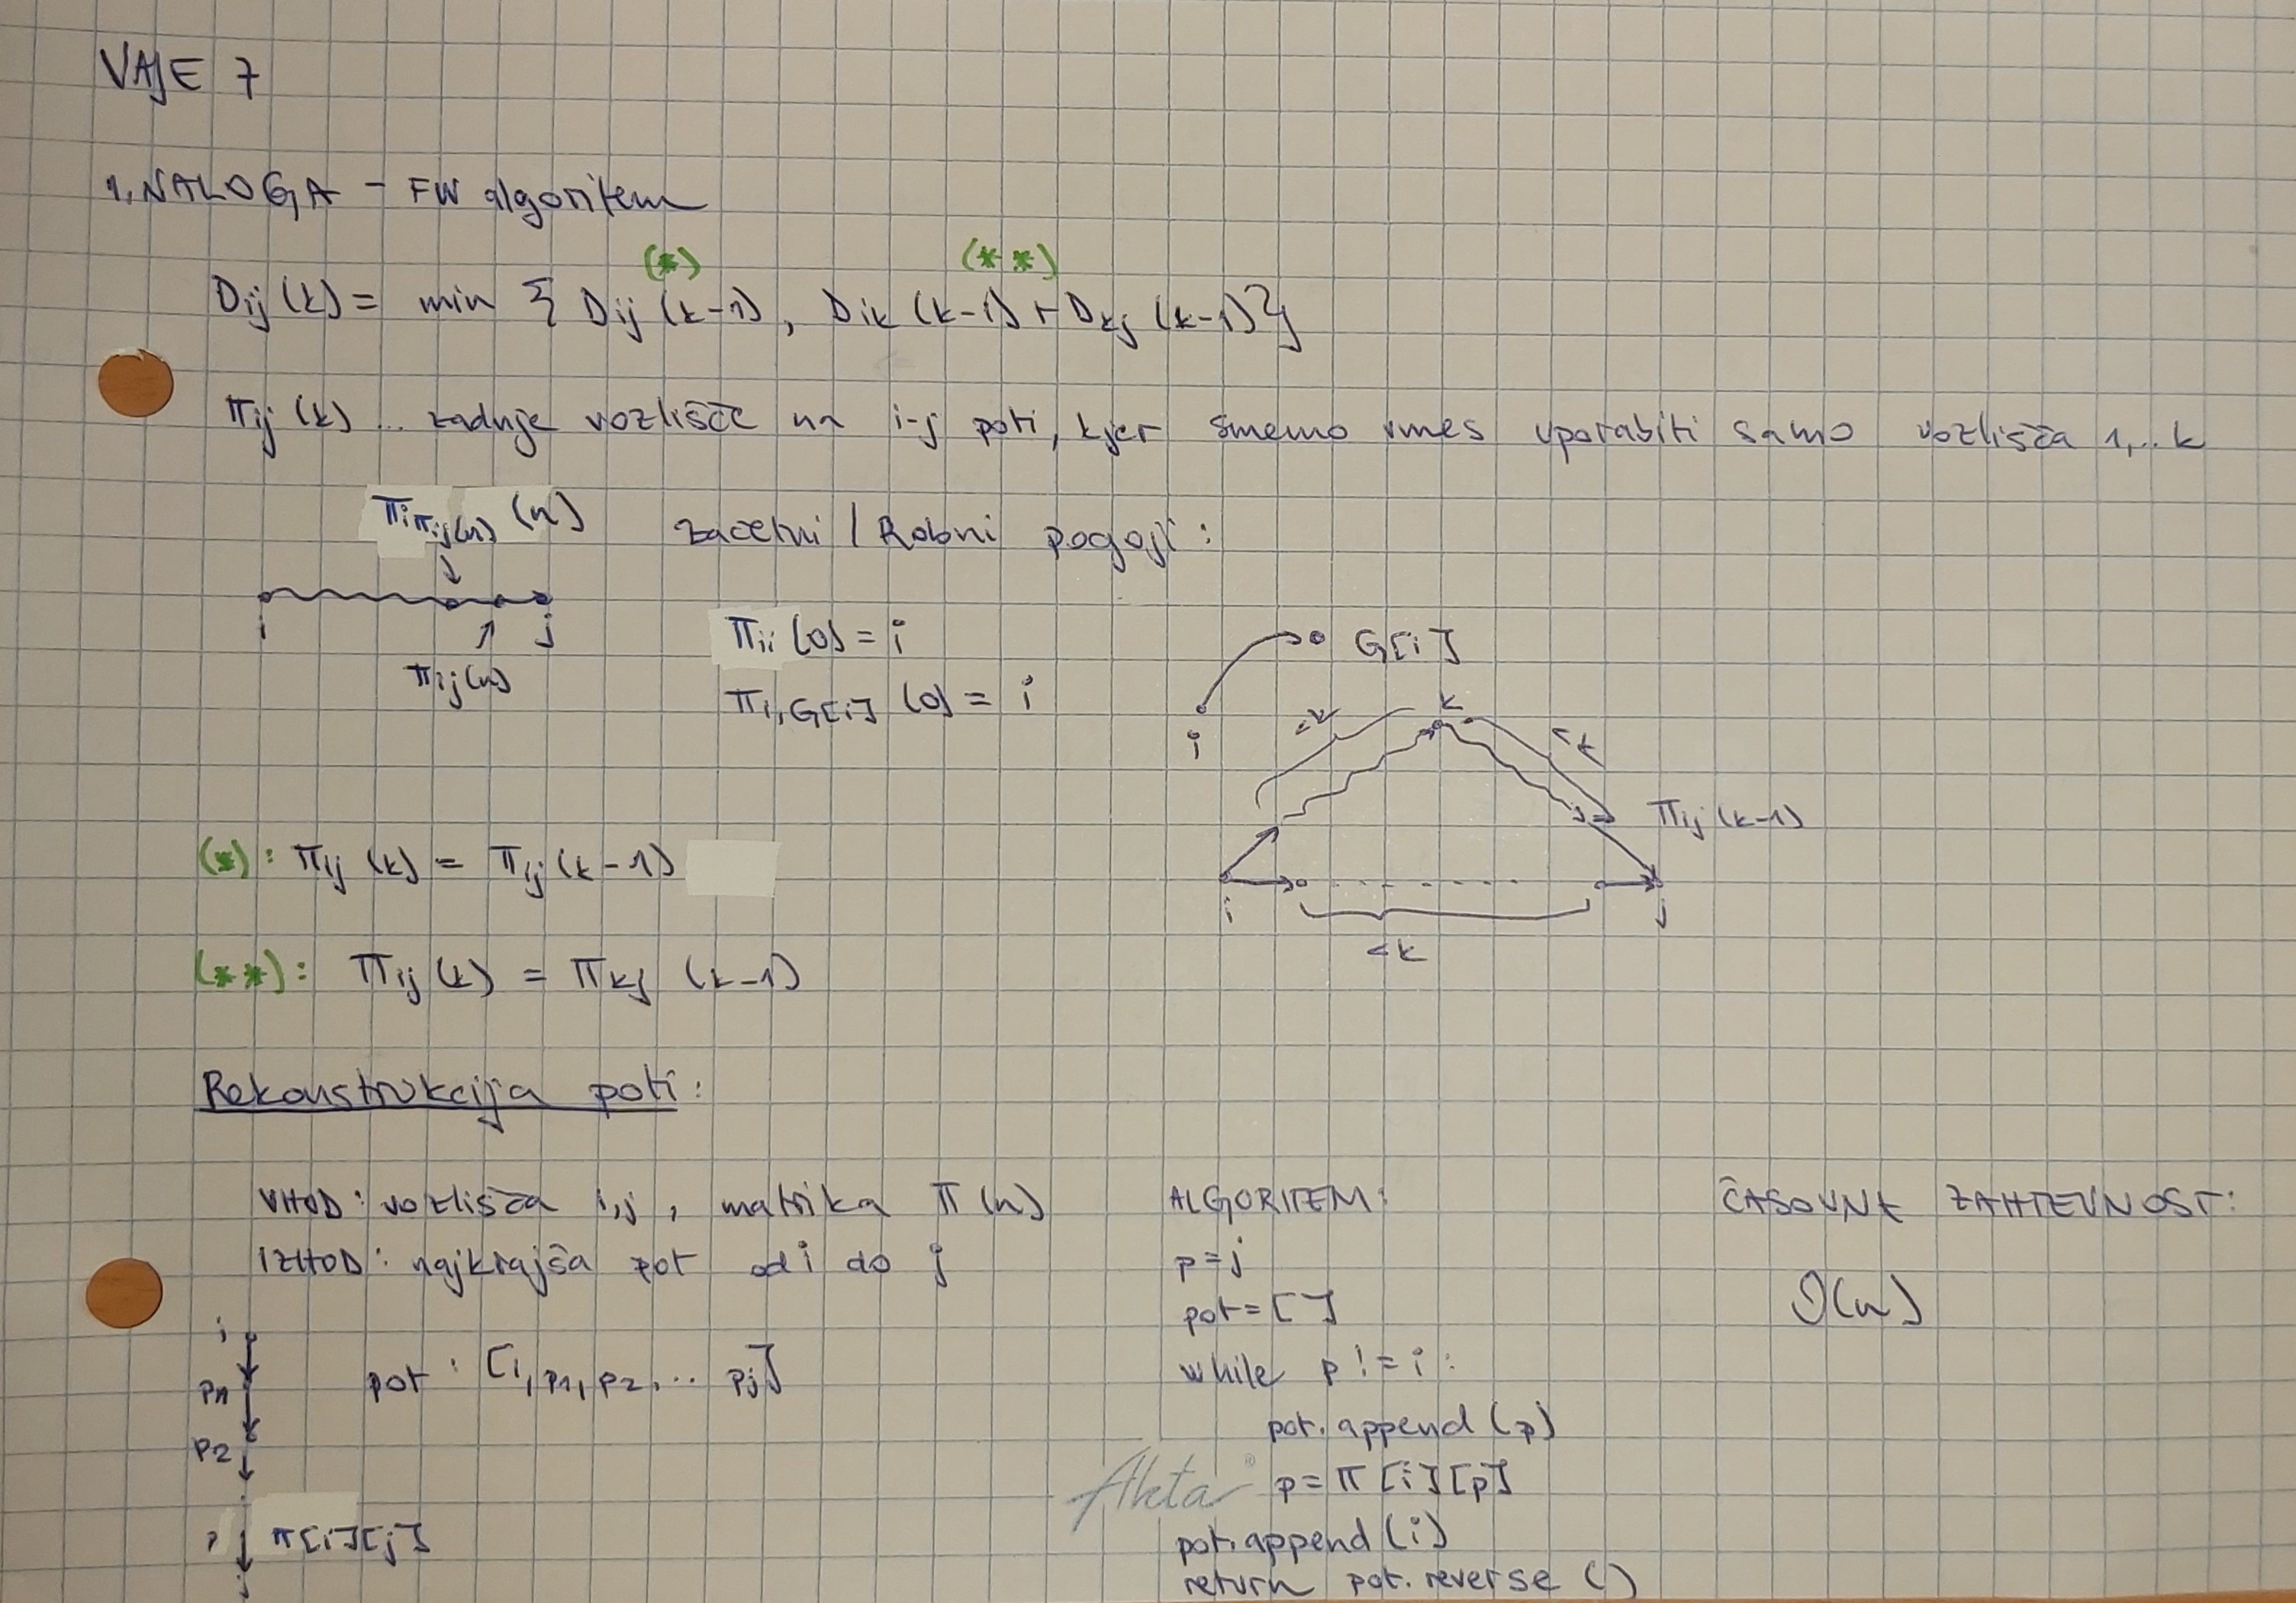 VAJE 7
1. NALOGA - FW algoritem
(*) (**)
Dij (k) = min { Dij (k-1), Dik (k-1) + Dkj (k-1)}
πij (k) ... zadnje vozlišče na i-j poti, kjer smemo vmes uporabiti samo vozlišča 1,...k
πiπij(n) (n)
začetni / Robni pogoji:
i j
πij(n)
πii (0) = i
πi,G[i] (0) = i
G[i]
i
k
<k <k
πij (k-1)
i j
<k
(*): πij (k) = πij (k-1)
(**): πij (k) = πkj (k-1)
Rekonstrukcija poti:
VHOD: vozlišča i,j, matrika π (n)
IZHOD: najkrajša pot od i do j
i
p1
p2
π[i][j]
j
pot: [i, p1, p2, ... pj]
ALGORITEM:
p=j
pot = [ ]
while p != i:
pot.append (p)
p = π [i][p]
pot.append (i)
return pot.reverse ()
Akta®
ČASOVNA ZAHTEVNOST:
O(n)